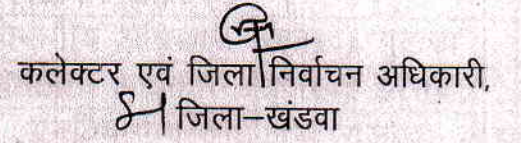 कलेक्टर एवं जिला निर्वाचन अधिकारी,
जिला–खंडवा